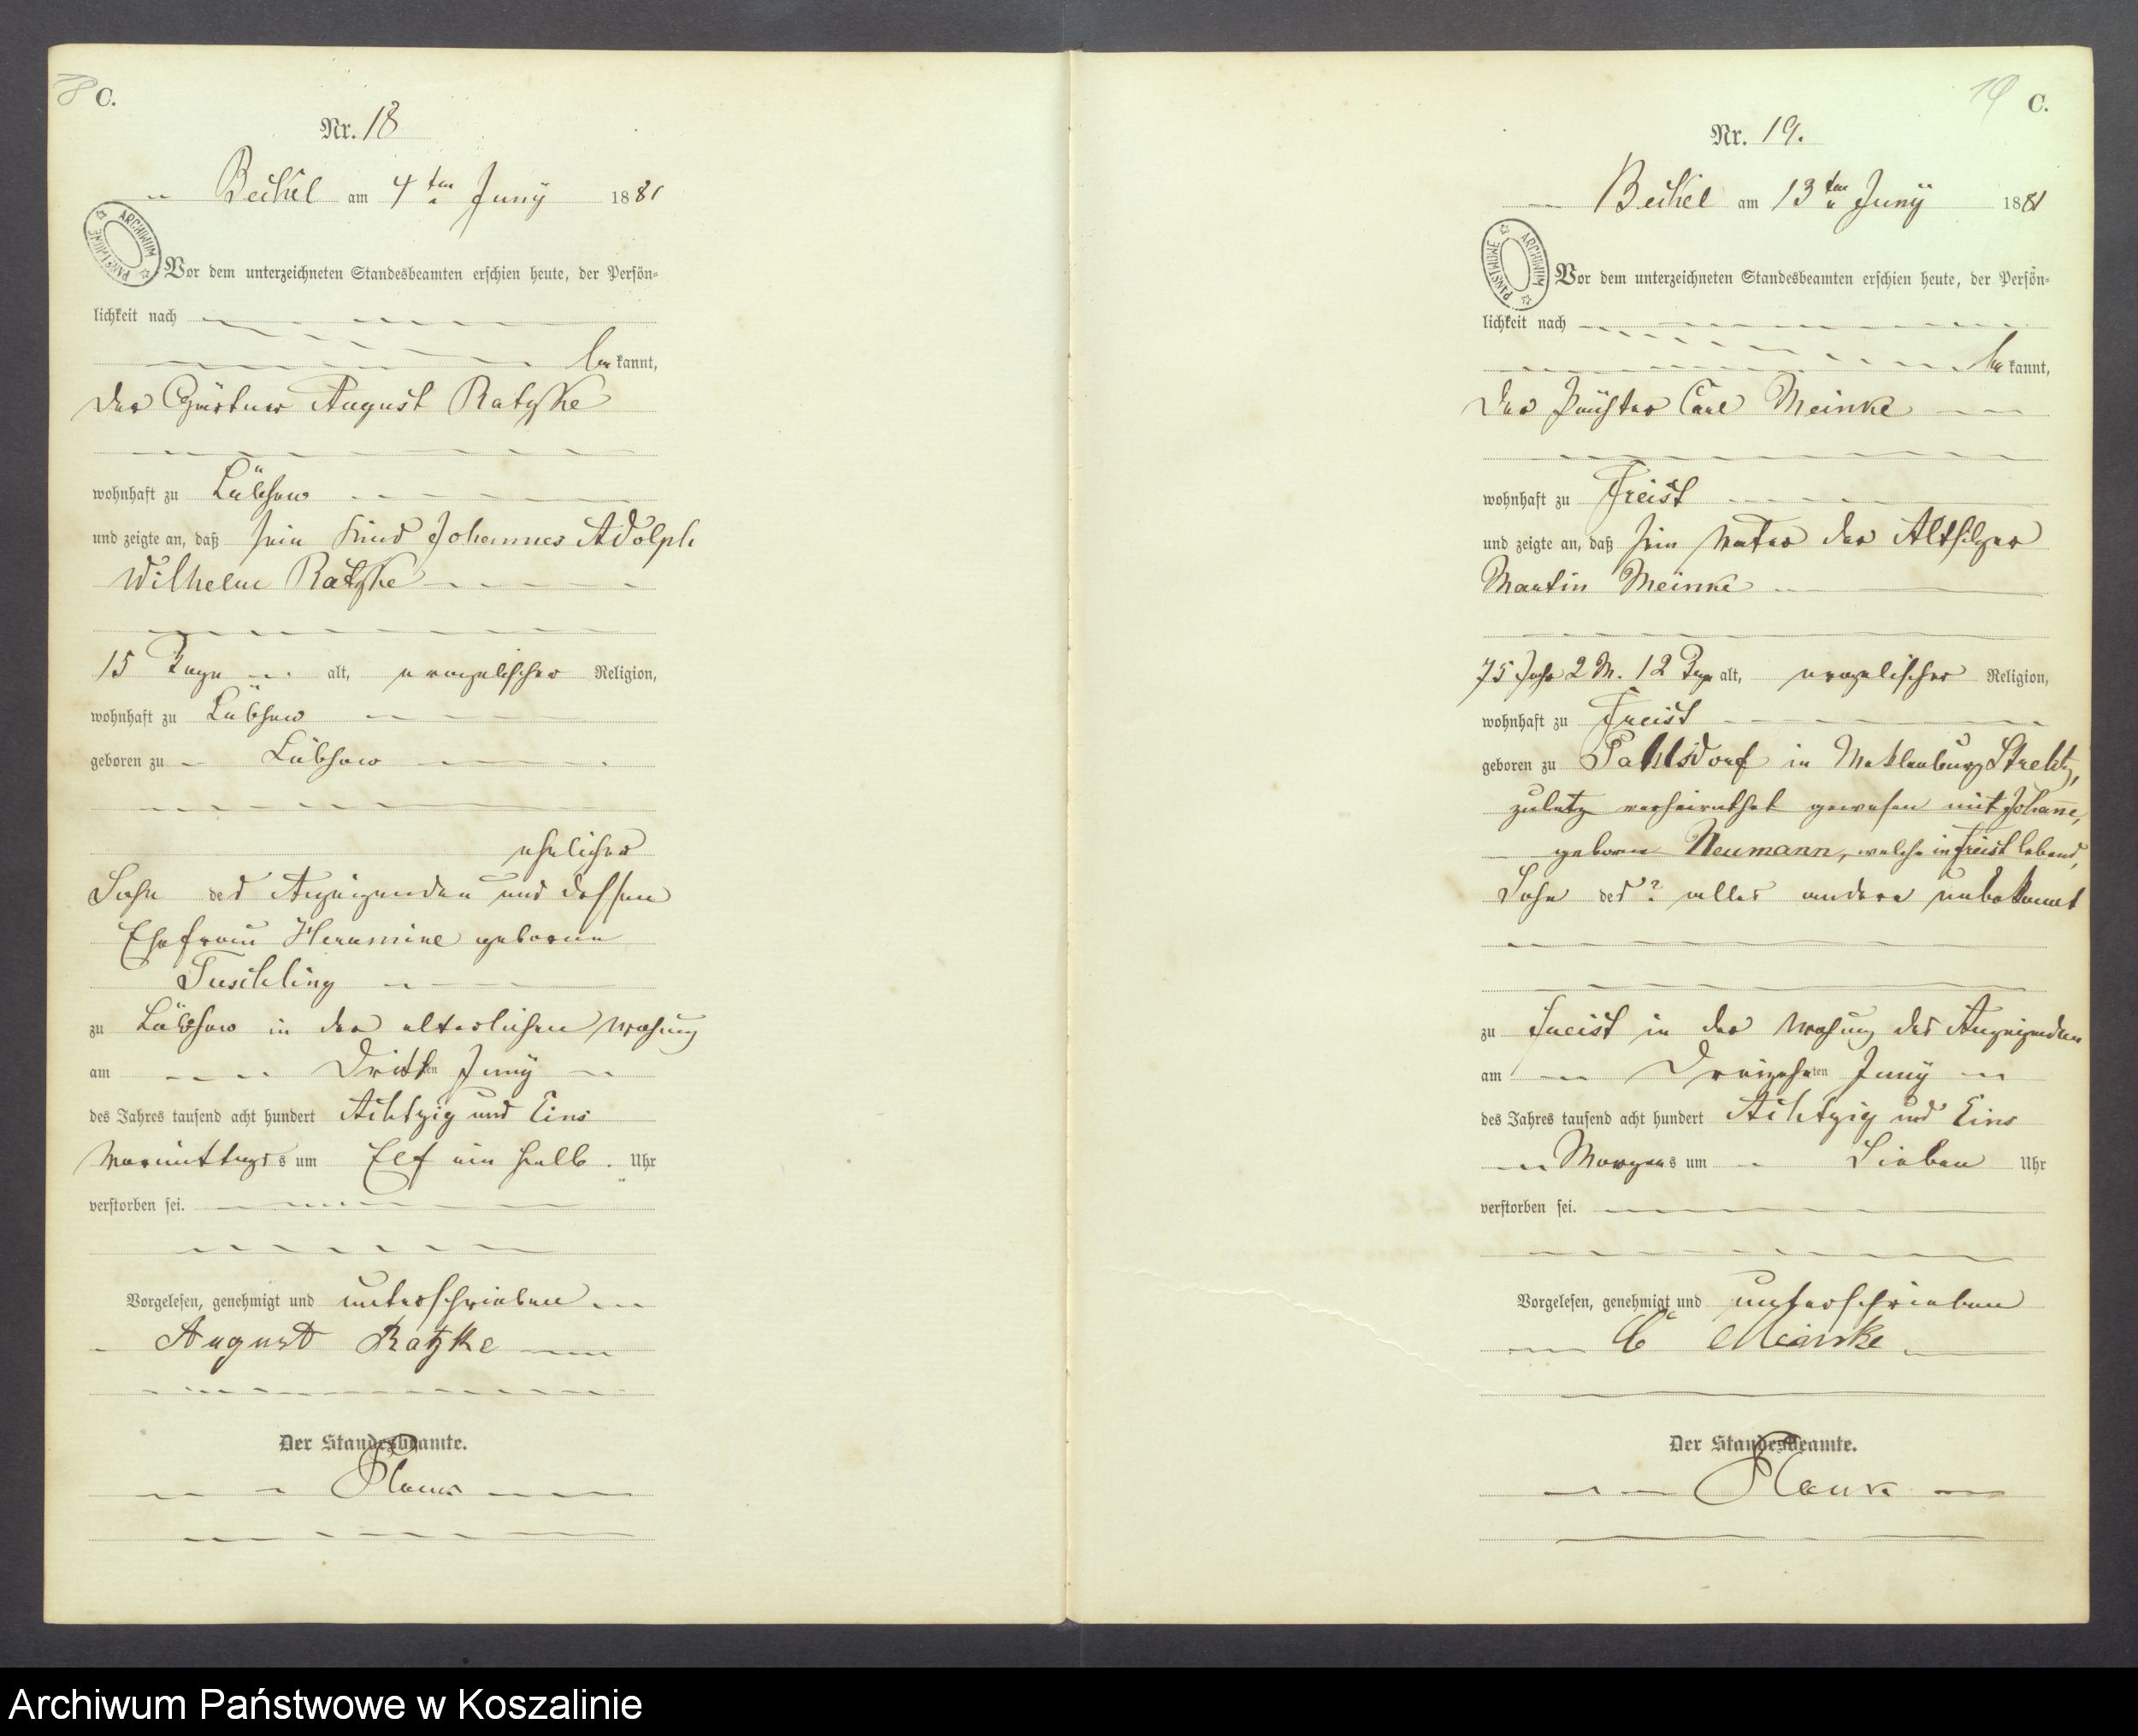 8 C.
Nr. 18
Beckel am 4ten Juny 1881
ARCHIWUM PAŃSTWOWE
Vor dem unterzeichneten Standesbeamten erschien heute, der Persön=
lichkeit nach
be kannt,
der Gärtner August Ratzke
wohnhaft zu Lübzow
und zeigte an, daß sein Kind Johannes Adolph
Wilhelm Ratzke
15 Tage alt, evangelischer Religion,
wohnhaft zu Lübzow
geboren zu Lübzow
ehelicher
Sohn des Anzeigenden und dessen
Ehefrau Hermine geborene
Tuschling
zu Lübzow in der elterlichen Wohung
am Dritten Juny
des Jahres tausend acht hundert Achtzig und Eins
Vormittags um Elf ein halb Uhr
verstorben sei.
Vorgelesen, genehmigt und unterschrieben
August Ratzke
Der Standesbeamte.
19 C.
Nr. 19.
Beckel am 13ten Juny 1881
ARCHIWUM PAŃSTWOWE
Vor dem unterzeichneten Standesbeamten erschien heute, der Persön=
lichkeit nach
be kannt,
der Carl Meinke
wohnhaft zu Freist
und zeigte an, daß sein Vater der Altsitzer
Martin Meinke
75 Jahr 2 M. 12 Tage alt, evangelischer Religion,
wohnhaft zu Freist
geboren zu Pahlsdorf in Meklenburg Strelitz,
zuletz verheirathet gewesen mit Johanne,
geborne Neumann, welche in Freist lebend,
Sohn des ? alles andere unbekannt
zu Freist in der Wohung des Anzeigenden
am Dreizehnten Juny
des Jahres tausend acht hundert Achtzig und Eins
Morgens um Sieben Uhr
verstorben sei.
Vorgelesen, genehmigt und unterschrieben
C Meinke
Der Standesbeamte.
Archiwum Państwowe w Koszalinie